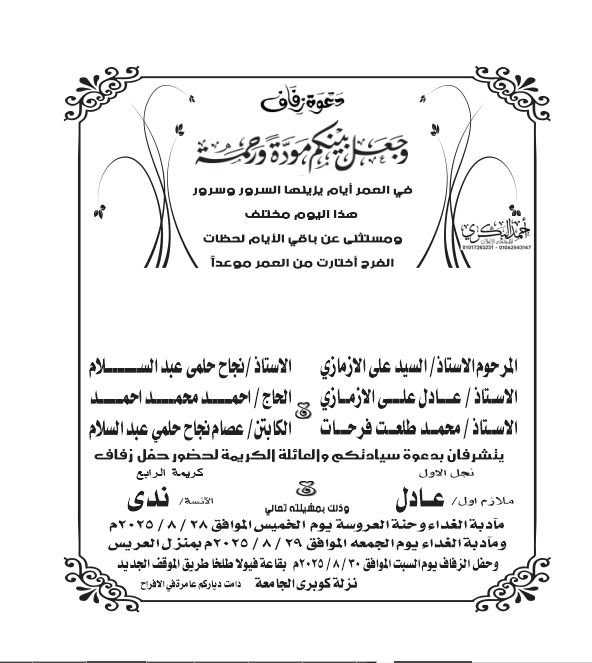 دعوة زفاف
وجعل بينكم مودة ورحمة
في العمر أيام يزينها السرور وسرور
هذا اليوم مختلف
ومستثنى عن باقي الأيام لحظات
الفرح أختارت من العمر موعداً
أحمد البكري
01017263231 - 01062543147
المرحوم الاستاذ/ السيد على الازمازي
الاستاذ/نجاح حلمى عبد الســـلام
الاستاذ / عــادل علــى الازمــازي
الحاج / احمــد محمــد احمــد
الاستاذ / محمــد طلعـت فرحـات
الكابتن/ عصام نجاح حلمي عبد السلام
يتشرفان بدعوة سيادتكم والعائلة الكريمة لحضور حفل زفاف
نجل الاول
كريمة الرابع
ملازم اول/ عــادل
الآنسة/ ندى
وذلك بمشيئته تعالي
مأدبة الغداء وحنة العروسة يوم الخميس الموافق ٢٨ / ٨ / ٢٠٢٥م
ومأدبة الغداء يوم الجمعه الموافق ٢٩ / ٨ / ٢٠٢٥م بمنزل العريس
وحفل الزفاف يوم السبت الموافق ٣٠ / ٨ /٢٠٢٥م بقاعة فيولا طلخا طريق الموقف الجديد
نزلة كوبرى الجامعة
دامت دياركم عامرة في الافراح